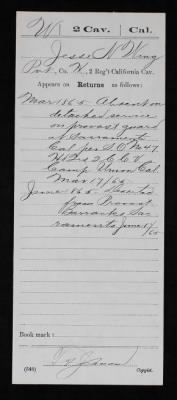 W | 2 Cav. | Cal.
Jesse N Wing
Pvt, Co. K, 2 Reg't California Cav.
Appears on Returns as follows:
Mar 1865 Absent on
detached service
on provost guard
at Sacramento
Cal per S.O. No 47
Hd Qrs 2 C C V
Camp Union Cal
Mar 17/65
June 1865 Deserted
from Provost
Barracks Sac-
ramento June 17/
65
Book mark:
(546) Copyist.